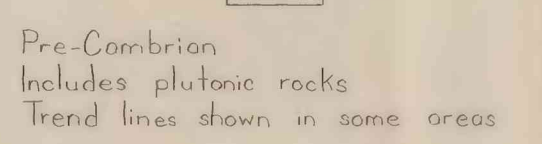 Pre-Cambrian
Includes plutonic rocks
Trend lines shown in some areas